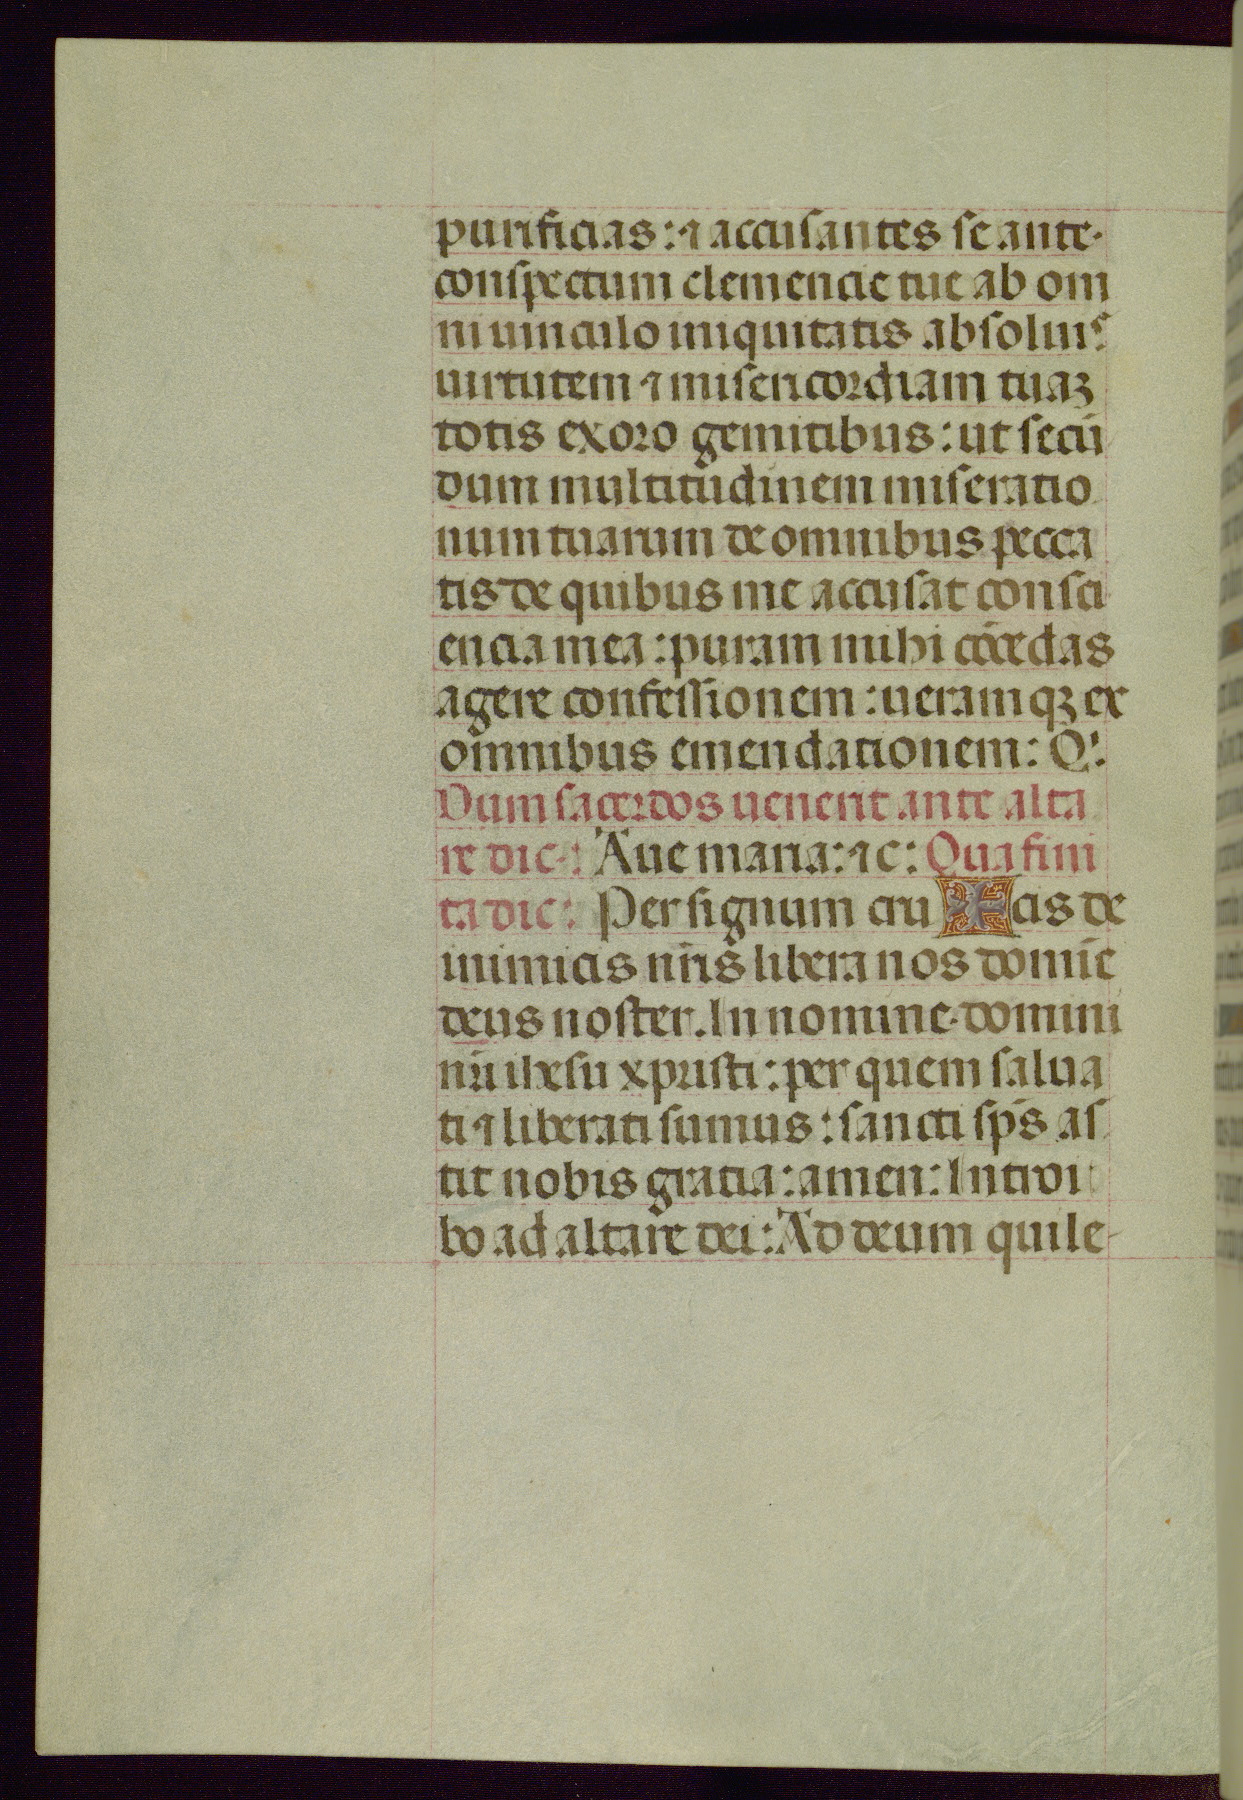 purificias: ⁊ accusantes se ante
conspectum clemencie tue ab om
ni uinculo iniquitatis absoluis:
uirtutem ⁊ misericordiam tuaꝫ
totis exoro gemitibus: ut secū
dum multitudinem miseratio
num tuarum de omnibus pecca
tis de quibus me accusat consci
encia mea: puram mihi cōcedas
agere confessionem: ueramqꝫ ex
omnibus emendationem: Q:
Dum sacerdos uenerit ante alta
re dic: Aue maria: ⁊c: Qua fini
ta dic: Per signum cru ✠ cis de
inimicis nr̄is libera nos domīe
deus noster. In nomine domini
nr̄i ihesu xpristi: per quem salua
ti ⁊ liberati sumus: sancti sp̄s as
sit nobis gratia: amen: Introi
bo ad altare dei: Ad deum qui le